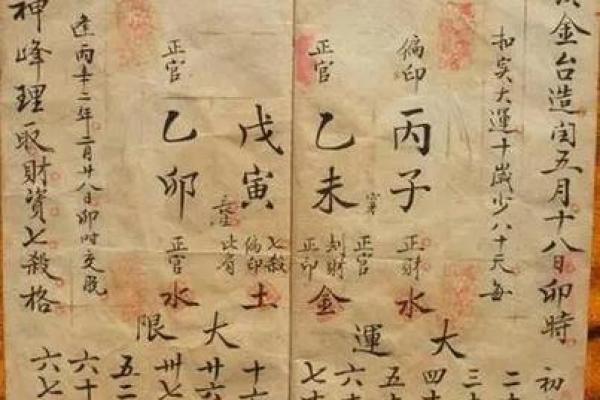 金台造閏五月十八日卯時
扣实大運十歲少八十天每
偏印
丙子
正財
水
正官
乙未
正官
劫財
正印
金
戊寅
七殺
偏印
比肩
土
正官
乙卯
正官
水
大運
大限
逢丙辛二年二月廿八日卯时交脱
神峰理取財資七殺格
初
二十
三十
四十
五
六十
七
十六
廿六
卅七
五二
六十
六七